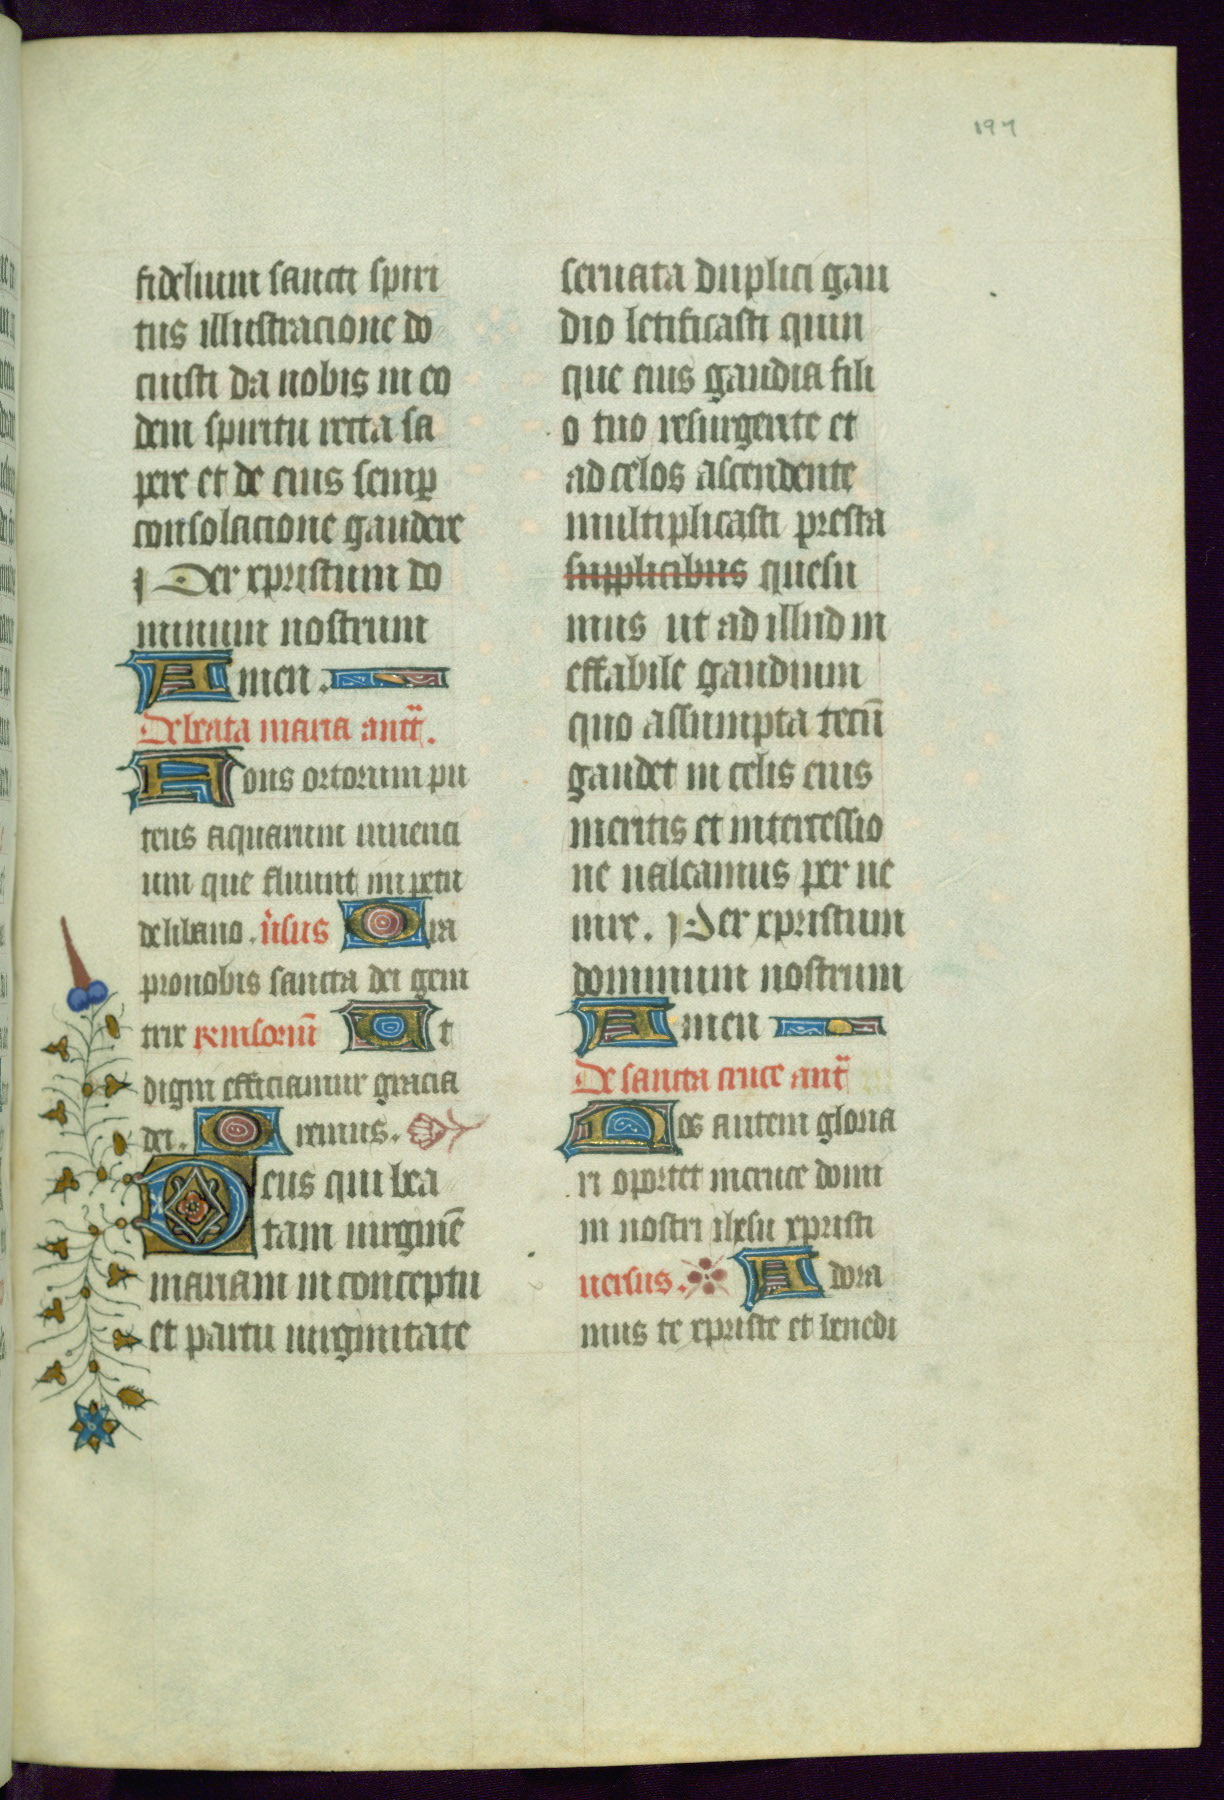 197
fidelium sancti spiri
tus illustracione do
cuisti da nobis in eo
dem spiritu recta sa
pere et de eius semp
consolacione gaudere
Per xpristum do
minum nostrum
Amen.
De beata maria antt.
Fons ortorum pu
teus aquarum viuenci
um que fluunt impetu
de libano. v̾sus Ora
pro nobis sancta dei geni
trix responsoriū Ut
digni efficiamur gracia
dei. Oremus.
Deus qui bea
tam virginē
mariam in conceptu
et partu virginitate
seruata duplici gau
dio letificasti quin
que eius gaudia fili
o tuo resurgente et
ad celos ascendente
multiplicasti presta
supplicibus quesu
mus ut ad illud in
effabile gaudium
quo assumpta tecū
gaudet in celis eius
meritis et intercessio
ne ualeamus per ue
nire. Per xpristum
dominum nostrum
Amen
De sancta cruce ant
Nos autem gloria
ri oportet in cruce domi
ni nostri ihesu xpristi
uersus. Adora
mus te xpriste et benedi